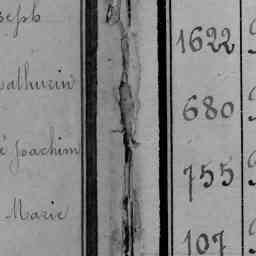 seph 1622
athurin 680
é Joachim 755
Marie 107